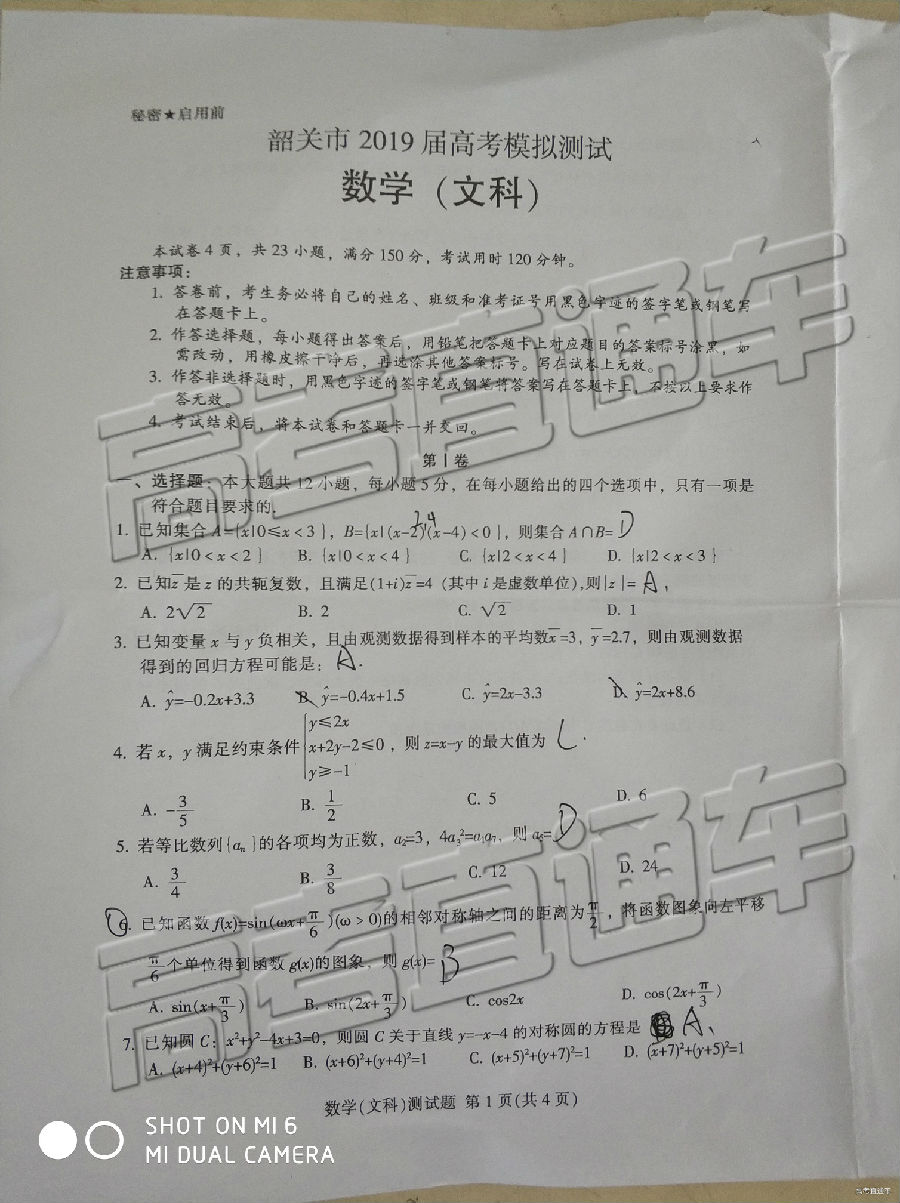 秘密★启用前
韶关市 2019 届高考模拟测试
数学（文科）
本试卷 4 页，共 23 小题，满分 150 分，考试用时 120 分钟。
注意事项：
1. 答卷前，考生务必将自己的姓名、班级和准考证号用黑色字迹的签字笔或钢笔写
在答题卡上。
2. 作答选择题，每小题得出答案后，用铅笔把答题卡上对应题目的答案标号涂黑，如
需改动，用橡皮擦干净后，再选涂其他答案标号。写在试卷上无效。
3. 作答非选择题时，用黑色字迹的签字笔或钢笔将答案写在答题卡上，不按以上要求作
答无效。
4. 考试结束后，将本试卷和答题卡一并交回。
第Ⅰ卷
一、选择题：本大题共 12 小题，每小题 5 分，在每小题给出的四个选项中，只有一项是
符合题目要求的.
2,4
1. 已知集合 A={x|0≤x<3}，B={x|(x-2)(x-4)<0}，则集合 A∩B= D
A. {x|0<x<2} B. {x|0<x<4} C. {x|2<x<4} D. {x|2<x<3}
2. 已知z̅是 z 的共轭复数，且满足(1+i)z̅=4 (其中 i 是虚数单位),则|z|= A ,
A. 2√2 B. 2 C. √2 D. 1
3. 已知变量 x 与 y 负相关，且由观测数据得到样本的平均数x̅=3，y̅=2.7，则由观测数据
得到的回归方程可能是： A.
A. ŷ=-0.2x+3.3 B. ŷ=-0.4x+1.5 C. ŷ=2x-3.3 D. ŷ=2x+8.6
4. 若 x，y 满足约束条件 {y≤2x
x+2y-2≤0
y≥-1 ，则 z=x-y 的最大值为 C .
A. -3/5 B. 1/2 C. 5 D. 6
5. 若等比数列{aₙ}的各项均为正数，a₂=3，4a₃²=a₁a₇，则 a₅= D
A. 3/4 B. 3/8 C. 12 D. 24
6. 已知函数 f(x)=sin(ωx+π/6)(ω>0)的相邻对称轴之间的距离为π/2，将函数图象向左平移
π/6个单位得到函数 g(x)的图象，则 g(x)= B
A. sin(x+π/3) B. sin(2x+π/3) C. cos2x D. cos(2x+π/3)
7. 已知圆 C：x²+y²-4x+3=0，则圆 C 关于直线 y=-x-4 的对称圆的方程是 A、
A. (x+4)²+(y+6)²=1 B. (x+6)²+(y+4)²=1 C. (x+5)²+(y+7)²=1 D. (x+7)²+(y+5)²=1
数学(文科)测试题 第 1 页(共 4 页)
高考直通车
高考直通车
SHOT ON MI 6
MI DUAL CAMERA